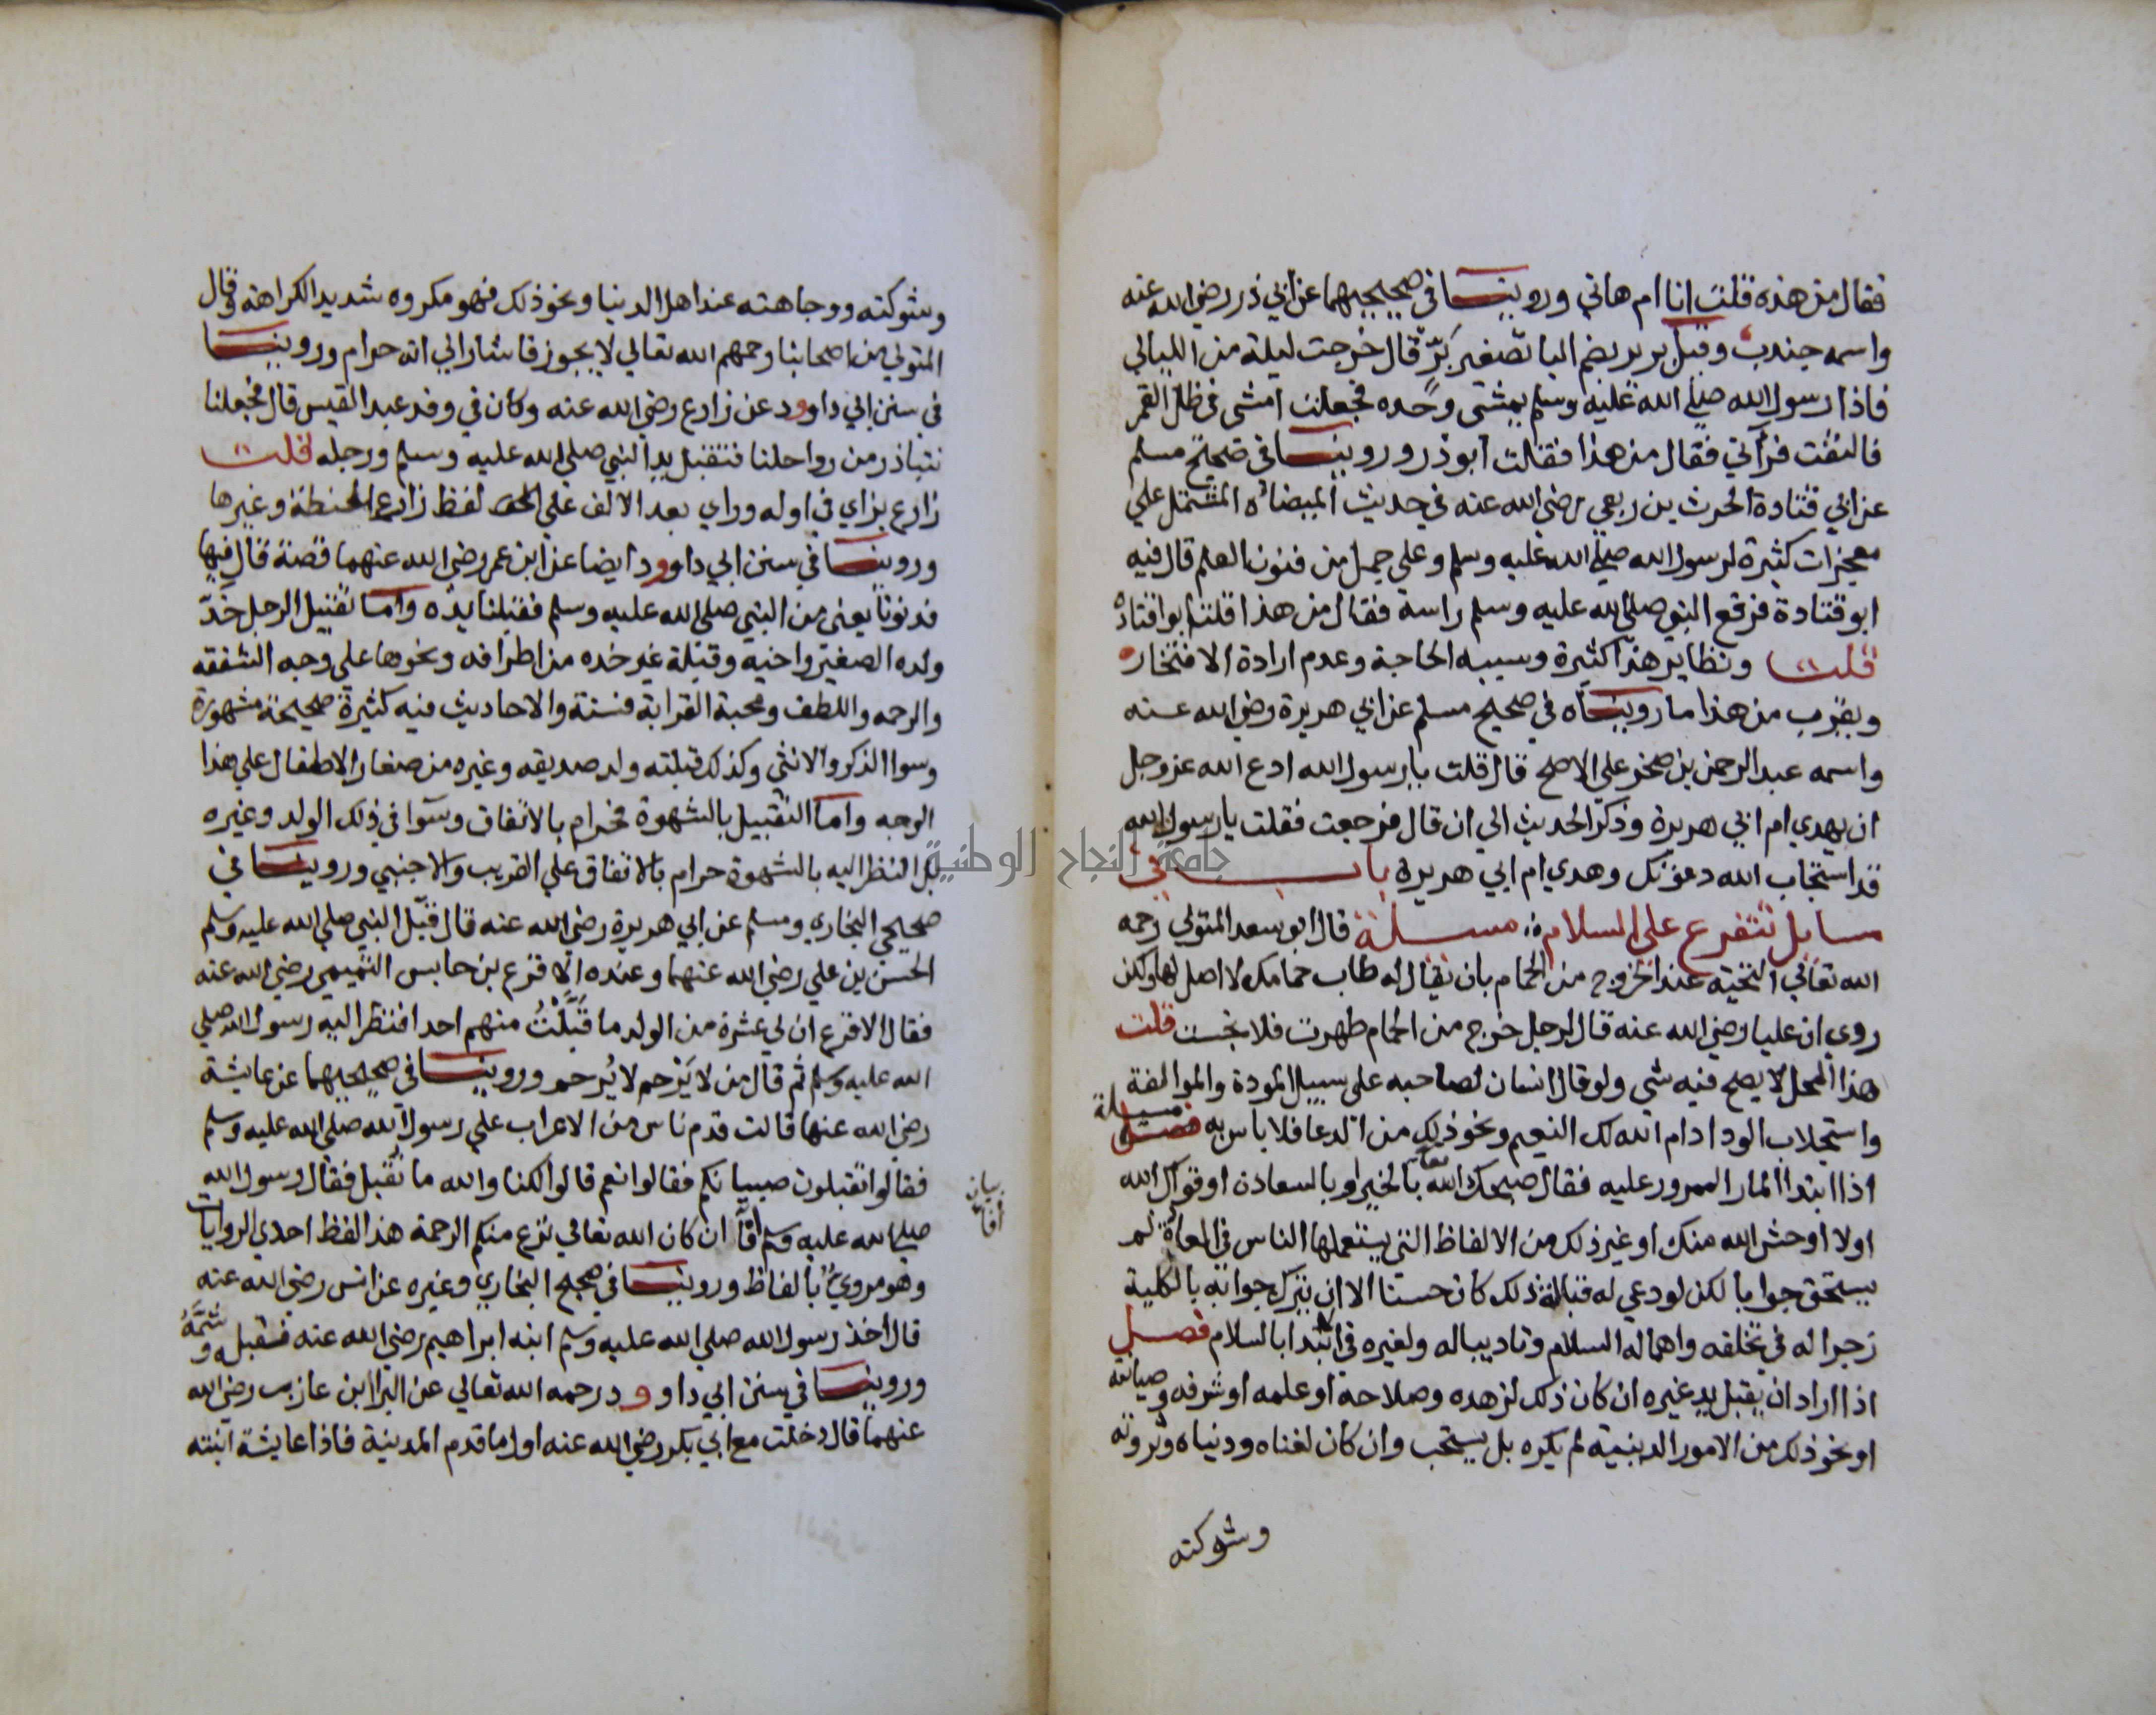 فقال من هذه قلت انا ام هاني وروينا في صحيحيهما عن ابي ذر رضي الله عنه
واسمه جندب وقيل برير بضم البا تصغير بَرّ قال خرجت ليلة من الليالي
فاذا رسول الله صلى الله عليه وسلم يمشي وحده فجعلت امشي في ظل القمر
فالتفت فرآني فقال من هذا فقلت ابو ذر وروينا في صحيح مسلم
عن ابي قتادة الحرث بن ربعي رضي الله عنه في حديث الميضاه المشتمل علي
معجزات كثيرة لرسول الله صلى الله عليه وسلم وعلي جمل من فنون العلم قال فيه
ابو قتادة فرفع النبي صلى الله عليه وسلم راسه فقال من هذا قلت ابو قتاده
قلت ونظاير هذا كثيرة وسببه الحاجة وعدم ارادة الافتخار
ويقرب من هذا ما رويناه في صحيح مسلم عن ابي هريرة رضي الله عنه
واسمه عبد الرحمن بن صخر علي الاصح قال قلت يا رسول الله ادع الله عز وجل
ان يهدي ام ابي هريرة وذكر الحديث الي ان قال فرجعت فقلت يا رسول الله
قد استجاب الله دعوتك وهدي ام ابي هريرة باب في
مسايل تتفرع علي السلام مسئلة قال ابو سعد المتولي رحمه
الله تعالي التحية عند الخروج من الحمام بان يقال له طاب حمامك لا اصل لها ولكن
روي ان عليا رضي الله عنه قال لرجل خرج من الحمام طهرت فلا نجست قلت
هذا المحل لا يصح فيه شي ولو قال انسان لصاحبه علي سبيل المودة والموالفة
واستجلاب الود ادام الله لك النعيم ونحو ذلك من الدعا فلا باس به فصل
مسيلة
اذا ابتدا المار الممرور عليه فقال صبحك الله تعالي بالخير او بالسعادة او قواك الله
اولا اوحش الله منك او غير ذلك من الالفاظ التي يستعملها الناس في العادة لم
يستحق جوابا لكن لو دعي له قبالة ذلك كان حسنا الا ان يترك جوابه بالكلية
زجرا له في تخلفه واهماله السلام وتاديبا له ولغيره في الابتدا بالسلام فصل
اذا اراد ان يقبل يد غيره ان كان ذلك لزهده وصلاحه او علمه او شرفه وصيانته
او نحو ذلك من الامور الدينية لم يكره بل يستحب وان كان لغناه ودنياه وثروته
وشوكته
وشوكته ووجاهته عند اهل الدنيا ونحو ذلك فهو مكروه شديد الكراهة وقال
المتولي من اصحابنا رحمهم الله تعالي لا يجوز فاشار الي انه حرام وروينا
في سنن ابي داوود عن زارع رضي الله عنه وكان في وفد عبد القيس قال فجعلنا
نتباذر من رواحلنا فنقبل يد النبي صلى الله عليه وسلم ورجله قلت
زارع بزاي في اوله وراي بعد الالف علي لفظ زارع الحنطة وغيرها
وروينا في سنن ابي داوود ايضا عن ابن عمر رضي الله عنهما قصة قال فيها
فدنونا يعني من النبي صلى الله عليه وسلم فقبلنا يده واما تقبيل الرجل خدّ
ولده الصغير واخيه وقبلة غير خده من اطرافه ونحوها علي وجه الشفقه
والرحمه واللطف ومحبة القرابة فسنة والاحاديث فيه كثيرة صحيحة مشهورة
وسوا الذكر والانثي وكذلك قبلته ولد صديقه وغيره من صغار الاطفال علي هذا
الوجه واما التقبيل بالشهوة فحرام بالاتفاق وسوا في ذلك الولد وغيره
بل النظر اليه بالشهوة حرام بالاتفاق علي القريب والاجنبي وروينا في
صحيحي البخاري ومسلم عن ابي هريرة رضي الله عنه قال قبّل النبي صلي الله عليه وسلم
الحسن بن علي رضي الله عنهما وعنده الاقرع بن حابس التميمي رضي الله عنه
فقال الاقرع ان لي عشرة من الولد ما قَبَّلْتُ منهم احدا فنظر اليه رسول الله صلي
الله عليه وسلم ثم قال من لا يَرْحم لا يُرحم وروينا في صحيحيهما عن عايشة
رضي الله عنها قالت قدم ناس من الاعراب علي رسول الله صلى الله عليه وسلم
فقالوا تقبلون صبيانكم فقالوا نعم قالوا لكنا والله ما نقبل فقال رسول الله
صلى الله عليه وسلم ان كان الله تعالي نزع منكم الرحمة هذا لفظ احدي الروايات
وهو مروي بالفاظ وروينا في صحيح البخاري وغيره عن انس رضي الله عنه
قال اخذ رسول الله صلي الله عليه وسلم ابنه ابراهيم رضي الله عنه فقبله وشمَّهُ
وروينا في سنن ابي داوود رحمه الله تعالي عن البرا ابن عازب رضي الله
عنهما قال دخلت مع ابي بكر رضي الله عنه اول ما قدم المدينة فاذا عايشة ابنته
جامعة النجاح الوطنية